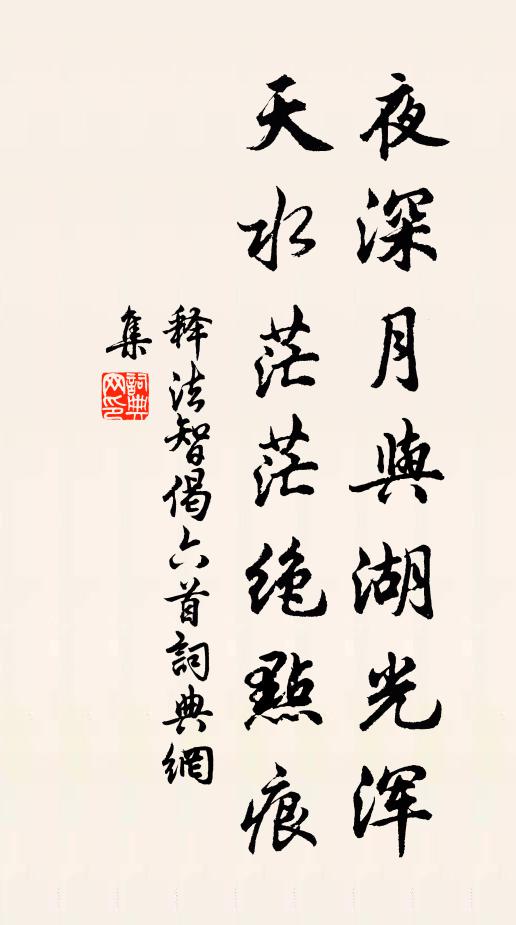 夜深月與湖光浑
天水茫茫绝點痕
释法智偈六首詞典網
集
詞典网印